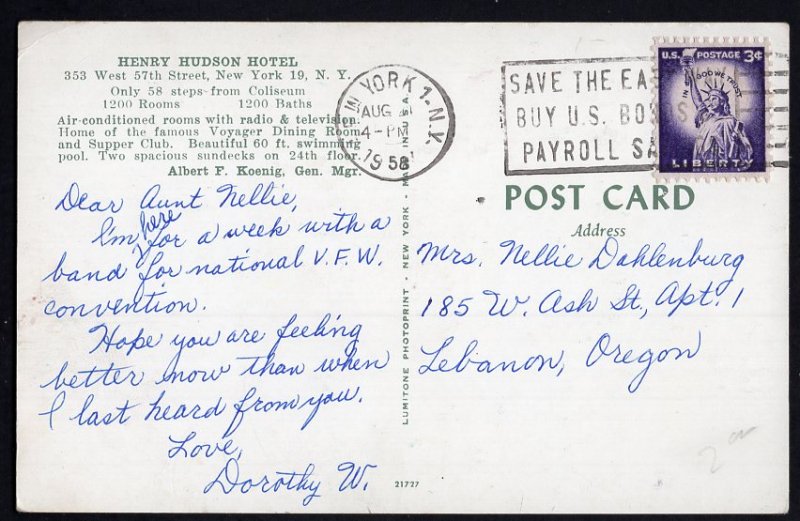 HENRY HUDSON HOTEL
353 West 57th Street, New York 19, N. Y.
Only 58 steps from Coliseum
1200 Rooms 1200 Baths
Air-conditioned rooms with radio & television.
Home of the famous Voyager Dining Room
and Supper Club. Beautiful 60 ft. swimming
pool. Two spacious sundecks on 24th floor.
Albert F. Koenig, Gen. Mgr.
Dear Aunt Nellie,
I'm here for a week with a
band for national V.F.W.
convention.
Hope you are feeling
better now than when
I last heard from you.
Love,
Dorothy W.
W YORK 1- N.Y.
AUG
4-PM
1958
LUMITONE PHOTOPRINT - NEW YORK - MADE IN U.S.A.
21727
SAVE THE EA
BUY U.S. BO S
PAYROLL SA
U.S. POSTAGE 3¢
IN GOD WE TRUST
LIBERTY
POST CARD
Address
Mrs. Nellie Dahlenburg
185 W. Ash St., Apt. 1
Lebanon, Oregon